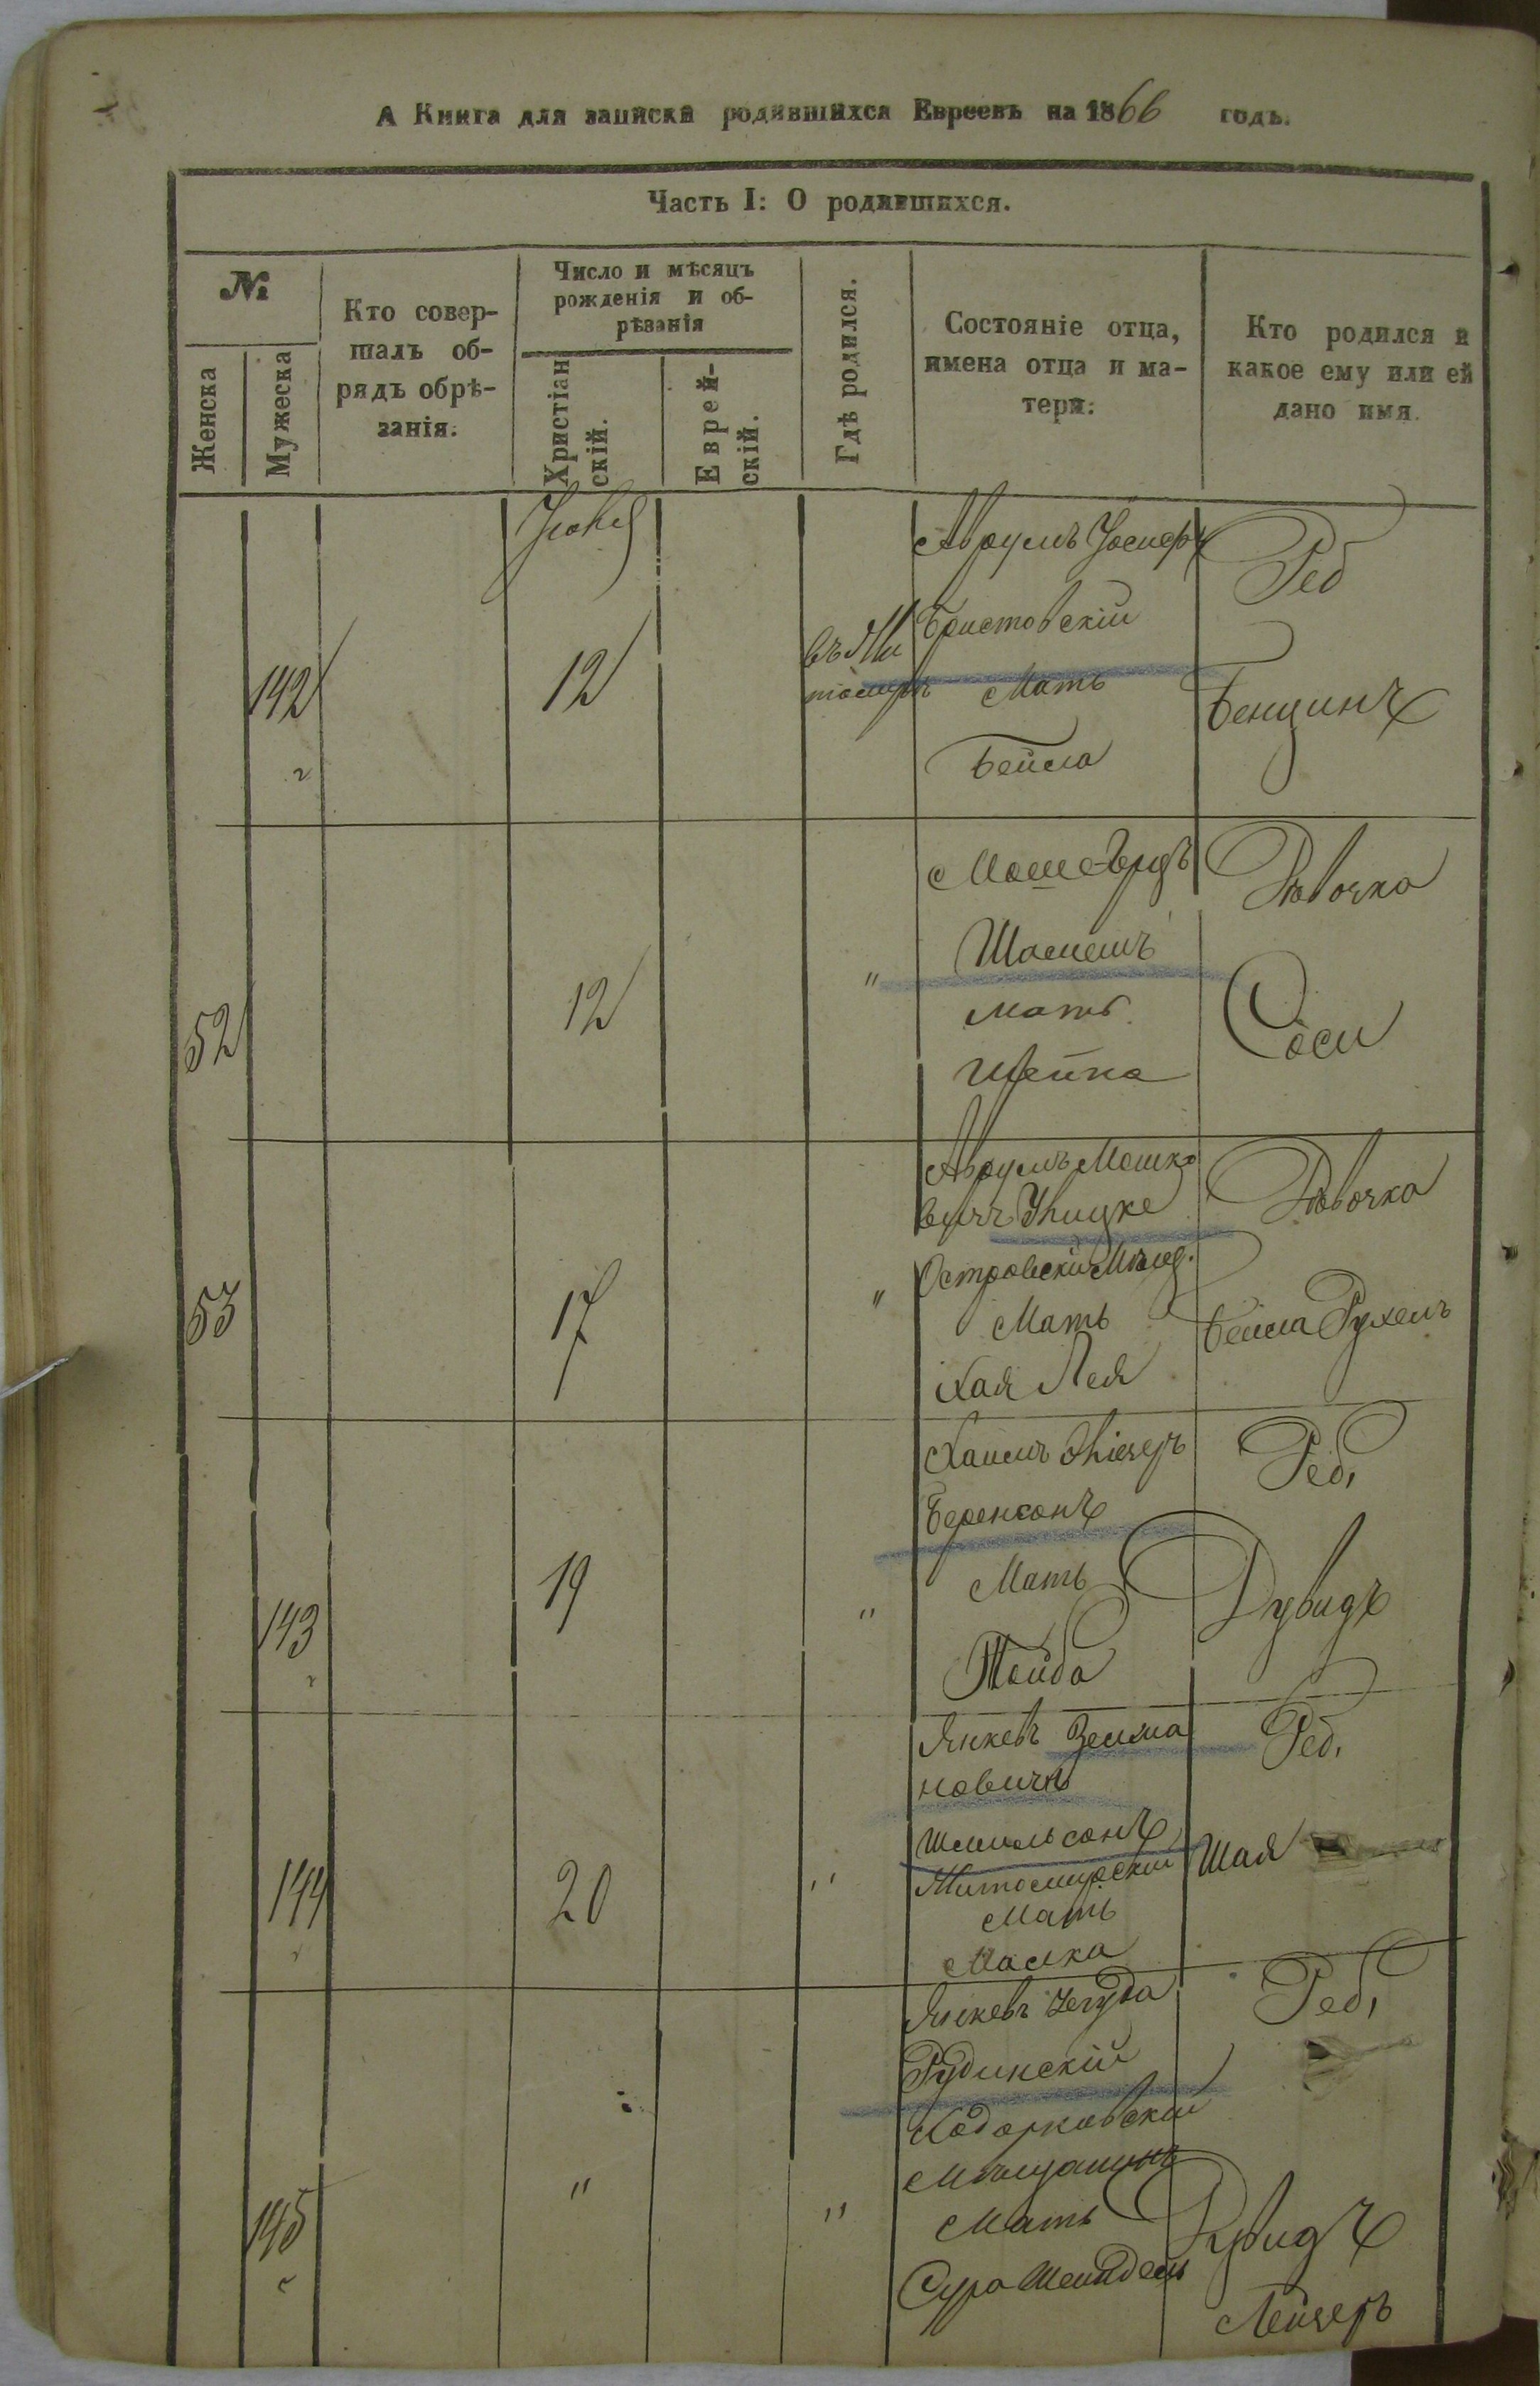 А Книга для записки родившихся Евреевъ на 1866 годъ.
Часть I: О родившихся.
№
Женска
Мужеска
Кто совер-
шалъ об-
рядъ обрѣ-
занія.
Число и мѣсяцъ
рожденія и об-
рѣзанія
Христіан
скій.
Еврей-
скій.
Гдѣ родился.
Состояніе отца,
имена отца и ма-
тери.
Кто родился и
какое ему или ей
дано имя.
142
12
въ Жи
томирѣ
Аврумъ Іосифъ
Бристовскій
Мать
Бейла
Реб
Бенцинъ
52
12
"
Мошe
Шамешъ
мать
Шейна
Дѣвочка
Соси
53
17
"
Аврумъ Мошко
вичъ
Островскій Мѣщ.
Мать
Хая Лея
Дѣвочка
Бейла Рухель
143
19
"
Хаимъ
Беренсонъ
Мать
Тойба
Реб.
Дувидъ
144
20
"
Янкевъ Зельма
новичъ
Шмильсонъ
Житомирскій
Мать
Малка
Реб.
Шая
145
"
"
Янкевъ Іегуда
Рудинскій
Ходорковскій
Мѣщанинъ
Мать
Сура Шейндель
Реб.
Дувидъ
Лейзеръ